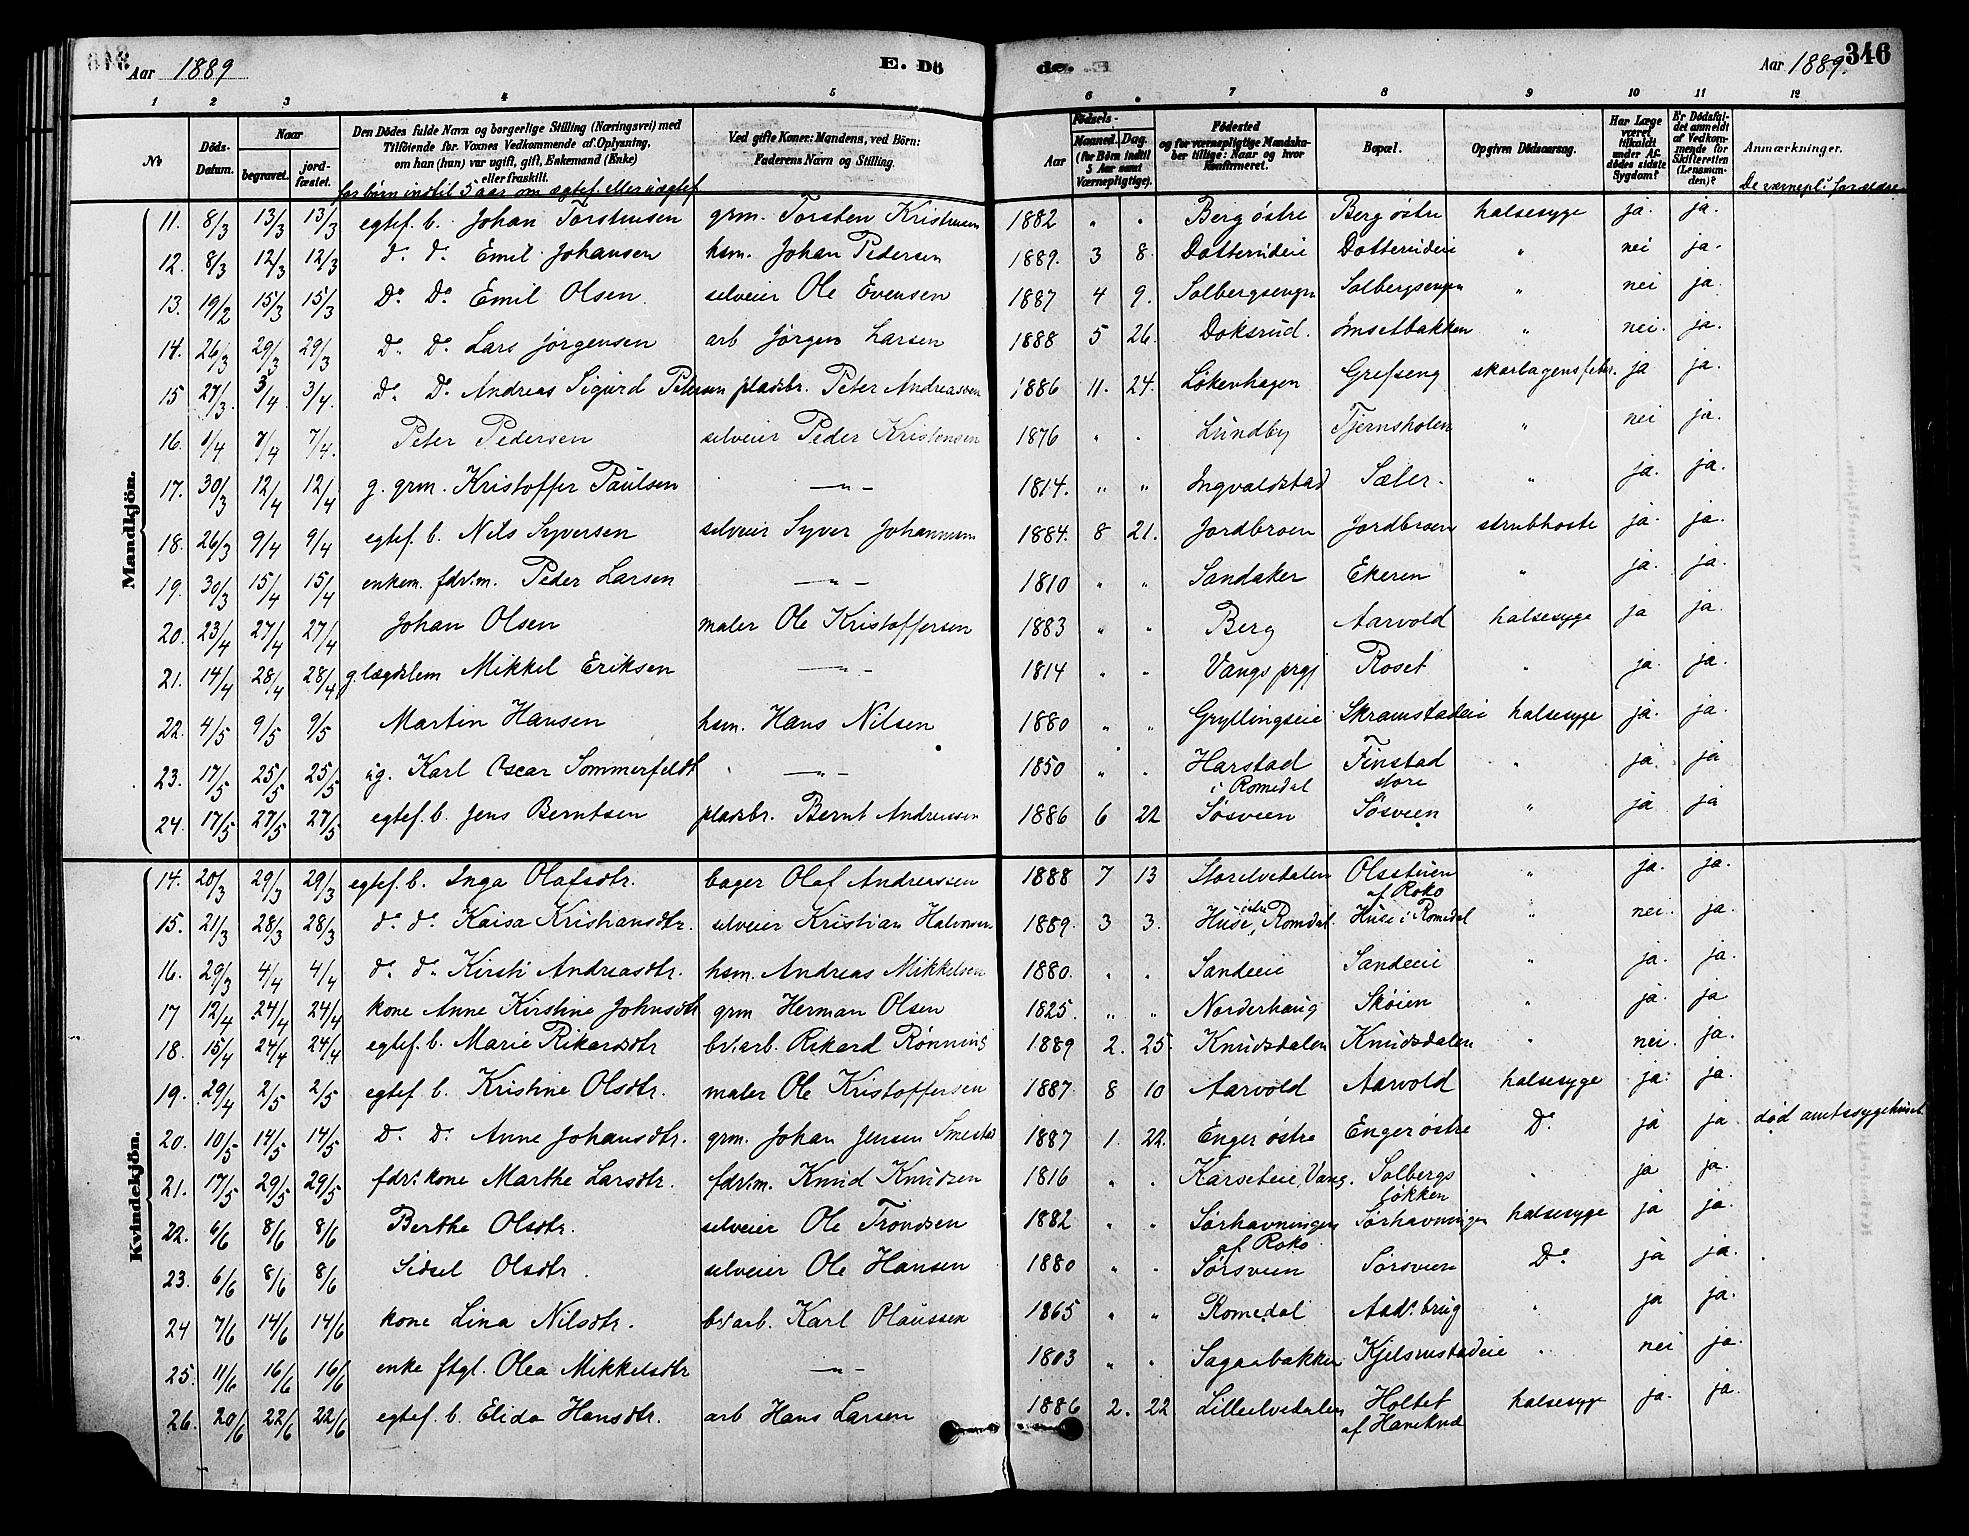 Aar 1889 E. Dö
de. Aar 1889. 316
1 2 3 4 5 6 7 8 9 10 11 12
No Döds-Datum. Naar begravet. jordfæstet. Den Dödes fulde Navn og borgerlige Stilling (Næringsvei) med Tilföiende for Voxnes Vedkommende af Oplysning, om han (hun) var ugift, gift, Enkemand (Enke) eller fraskilt. Ved gifte Koner: Mandens, ved Börn: Faderens Navn og Stilling. Födsels- Aar Maaned. Dag. (for Börn indtil 5 Aar samt Værnepligtige). Födested og for værnepligtige Mandskaber tillige: Naar og hvor Konfirmeret. Bopæl. Opgiven Dödsaarsag. Har Læge været tilkaldt under Afdödes sidste Sygdom? Er Dödsfaldet anmeldt af Vedkommende for Skifteretten (Lensmanden)? Anmærkninger.
for börn indtil 5 aar om egtef. eller uegtef. De værnepl.s forældre
Mandkjön.
11. 8/3 13/3 13/3 egtef. b. Johan Torstensen grm. Torsten Kristensen 1882 " " Berg østre Berg østre halsesyge ja. ja.
12. 8/3 12/3 12/3 do. do. Emil Johansen hsm. Johan Pedersen 1889. 3 8. Dotterudeie Dotterudeie " nei ja.
13. 19/2 15/3 15/3 Do. Do. Emil Olsen. selveier Ole Evensen 1887 4 9. Solbergsengn Solbergsengen " nei ja.
14. 26/3 29/3 29/3 Do. Do. Lars Jørgensen arb Jørgen Larsen 1888 5 26. Doksrud. Imsetbakken " nei. ja.
15 27/3. 3/4 3/4. do. Do. Andreas Sigurd Petersen pladsbr. Peter Andreassen 1886 11. 24. Løkenhagen Grefseng skarlagensfeber. ja ja.
16. 1/4 7/4 7/4. Peter Pedersen selveier Peder Kristensen 1876 " " Lundby Tjernsholen " nei ja.
17. 30/3 12/4 12/4 g. grm. Kristoffer Paulsen — " — 1814. " " Ingvaldstad Sæler. " ja. ja.
18. 26/3 9/4 9/4 egtef. b. Nils Syversen selveier Syver Johannesen 1884. 8 21. Jordbroen Jordbroen strubhoste ja. ja.
19. 30/3 15/4 15/4 enkem. fdr.m. Peder Larsen — " — 1810 " " Sandaker Ekeren " ja. ja.
20. 23/4 27/4 27/4 Johan Olsen maler Ole Kristoffersen 1883 " " Berg Aarvold halsesyge ja ja.
21. 14/4 28/4 28/4 g. lægdslem Mikkel Eriksen — " — 1814 " " Vangs prgj Roset " ja. ja.
22. 4/5 9/5 9/5 Martin Hansen hsm. Hans Nilsen 1880 " " Gryllingseie Skramstadeie halsesyge ja. ja.
23. 17/5 25/5 25/5 ug. Karl Oscar Sommerfeldt — " — 1850 " " Harstad i Romedal Finstad store " ja. ja
24. 17/5 27/5 27/5 egtef. b. Jens Berntsen pladsbr. Bernt Andreassen 1886 6 22 Søsveen Søsveen " ja ja
Kvindekjön.
14. 20/3 29/3 29/3 egtef. b. Inga Olafsdtr. bager Olaf Andreassen 1888 7 13 Storelvedalen Olsstuen af Roko " ja. ja.
15. 21/3 28/3 28/3 do. do. Kaisa Kristiansdtr. selveier Kristian Halvorsen 1889. 3 3. Huse, Romdal. Huse i Romedal " nei. ja.
16. 29/3 4/4 4/4 do. do. Kirsti Andreasdtr. hsm. Andreas Mikkelsen 1880. " " Sandeie Sandeie " ja. ja.
17 12/4 24/4 24/4 kone Anne Kirstine Johnsdtr grm Herman Olsen 1825. " " Norderhaug Skøien " ja. ja
18. 15/4 24/4 24/4 egtef. b. Marie Rikardsdtr br.arb. Rikard Rønning 1889 2. 25. Knudsdalen Knudsdalen " nei. ja.
19. 29/4 2/5 2/5 egtef. b. Kristine Olsdtr. maler Ole Kristoffersen 1887. 8 10 Aarvold Aarvold halsesyge ja. ja.
20. 10/5 14/5 14/5 Do. Do. Anne Johansdtr. grm. Johan Jensen Smestad 1887 1. 22. Enger østre Enger østre Do. ja ja. død amtssygehuset
21. 17/5 29/5 29/5 fdr.kone Marthe Larsdtr. fdr.m. Knud Knudsen 1816 " " Karseteie, Vang. Solbergsløkken " ja ja.
22. 6/6 8/6 8/6 Berthe Olsdtr. selveier Ole Trondsen 1882 " " Sørhavningen af Roko Sørhavningen halsesyge ja ja.
23. 6/6 8/6 8/6 Sidsel Olsdtr. selveier Ole Hansen 1880 " " Sørsveen Sørsveen Do. ja ja.
24 7/6 14/6 14/6 kone Lina Nilsdtr. br.arb. Karl Olaussen 1865 " " Romedal Aads brug " ja ja.
25. 11/6 16/6 16/6 enke ftgl. Olea Mikkelsdtr — " — 1803 " " Sagaabakken Kjelsrustadeie " nei ja.
26. 20/6 22/6 22/6 egtef. b. Elida Hansdtr. arb Hans Larsen 1886 2. 22 Lilleelvedalen Holtet af Hanekna halsesyge ja. ja.